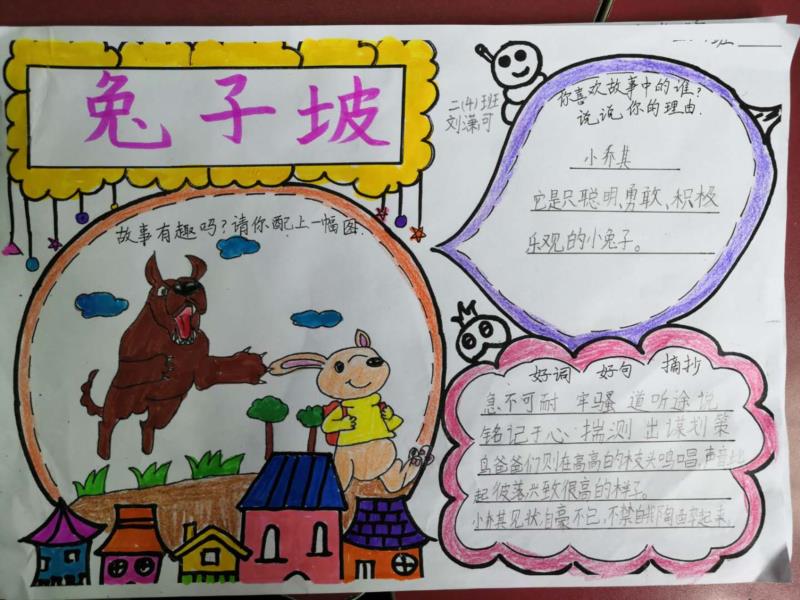 兔子坡
二(4)班
刘潇可
故事有趣吗?请你配上一幅图.
你喜欢故事中的谁?
说说你的理由.
小乔其
它是只聪明、勇敢、积极
乐观的小兔子。
好词 好句 摘抄
急不可耐 牢骚 道听途说
铭记于心 揣测 出谋划策
鸟爸爸们则在高高的枝头鸣唱,声音此
起彼落,兴致很高的样子。
小乔其见状,自豪不已,不禁自我陶醉起来。